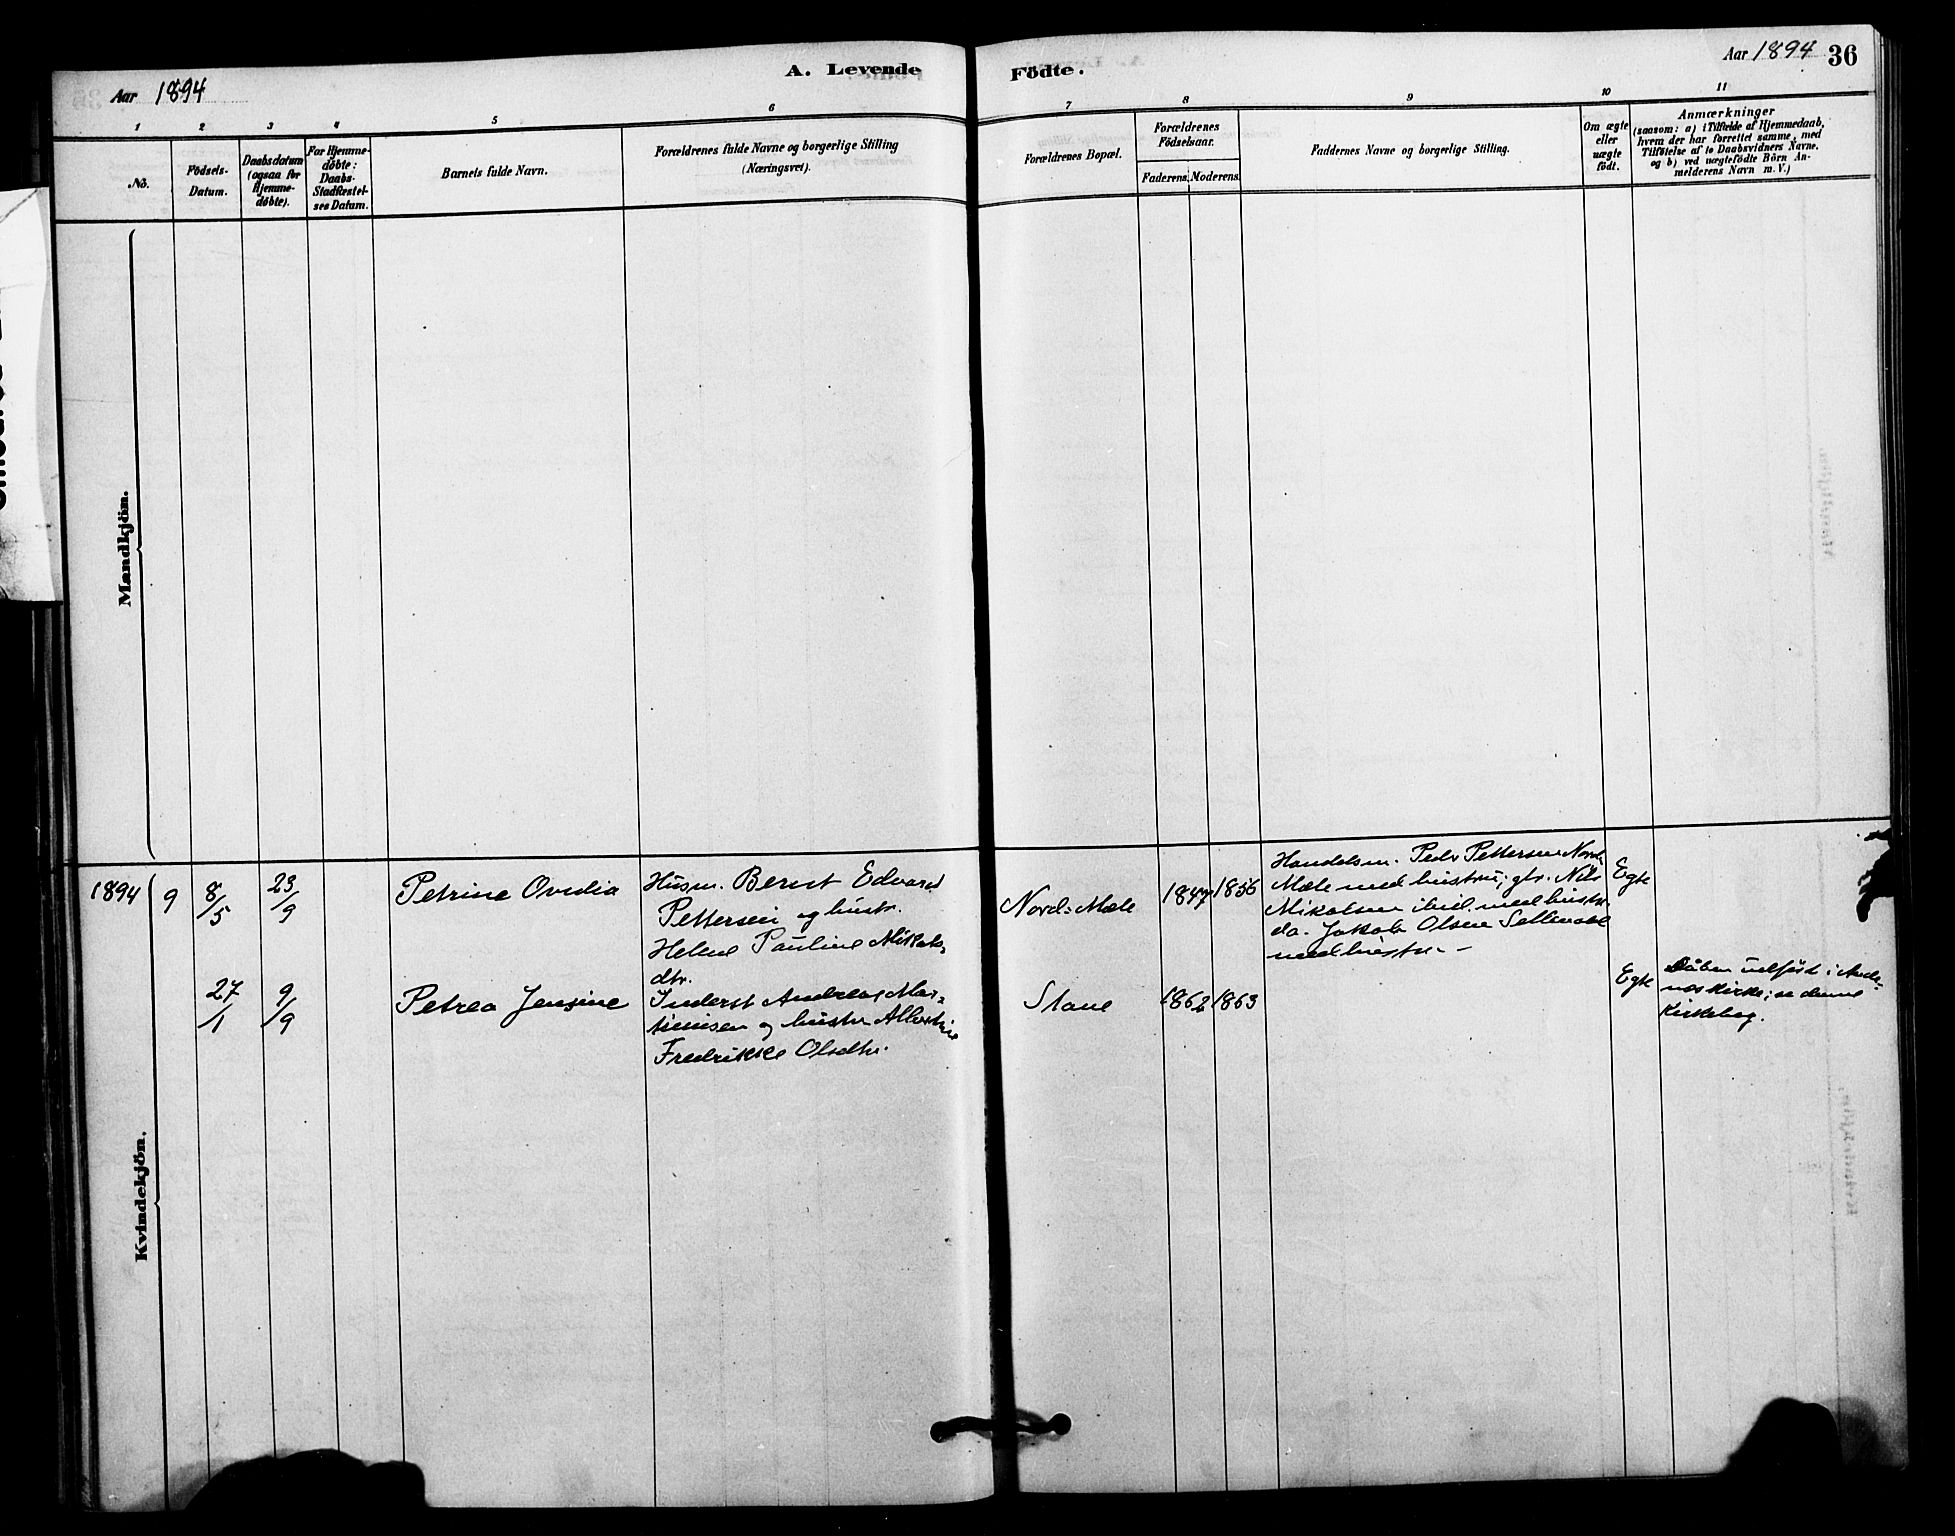 Aar 1894
A. Levende
Födte.
Aar 1894
36
1
2
3
4
5
6
7
8
9
10
11
No.
Födsels-
Datum.
Daabsdatum
(ogsaa for
Hjemme-
døbte).
For Hjemme-
døbte:
Daabs-
Stadfæstel-
ses Datum.
Barnets fulde Navn.
Forældrenes fulde Navne og borgerlige Stilling
(Næringsvei).
Forældrenes Bopæl.
Forældrenes
Födselsaar.
Faderens.
Moderens.
Faddernes Navne og borgerlige Stilling.
Om ægte
eller
uægte
født.
Anmærkninger
(saasom: a) i Tilfælde af Hjemmedaab,
hvem der har forrettet samme, med
Tilføielse af to Daabsvidners Navne,
og b) ved uægtefödte Börn An-
melderens Navn m. V.)
Mandkjön.
Kvindekjön.
1894
9
8/5
23/9
Petrine Ovedia
Husm. Bernt Edvard
Pettersen og hustr.
Helene Pauline Mikals-
dtr.
Nord-Mæle
1847
1856
Handelsm. Peder Pettersen Nord-
Mæle med hustru; gbr. Nils
Mikalsen ibid. med hustr.
do. Jakob Olsen
med hustr. -
Egte
27/1
9/9
Petrea Jensine
Inderst Andreas Mar-
tinusen og hustr Albertine
Fredrikke Olsdtr.
Stave
1862
1863
Egte
Dåben udført i Ande-
nes kirke; se denne
kirkebog.